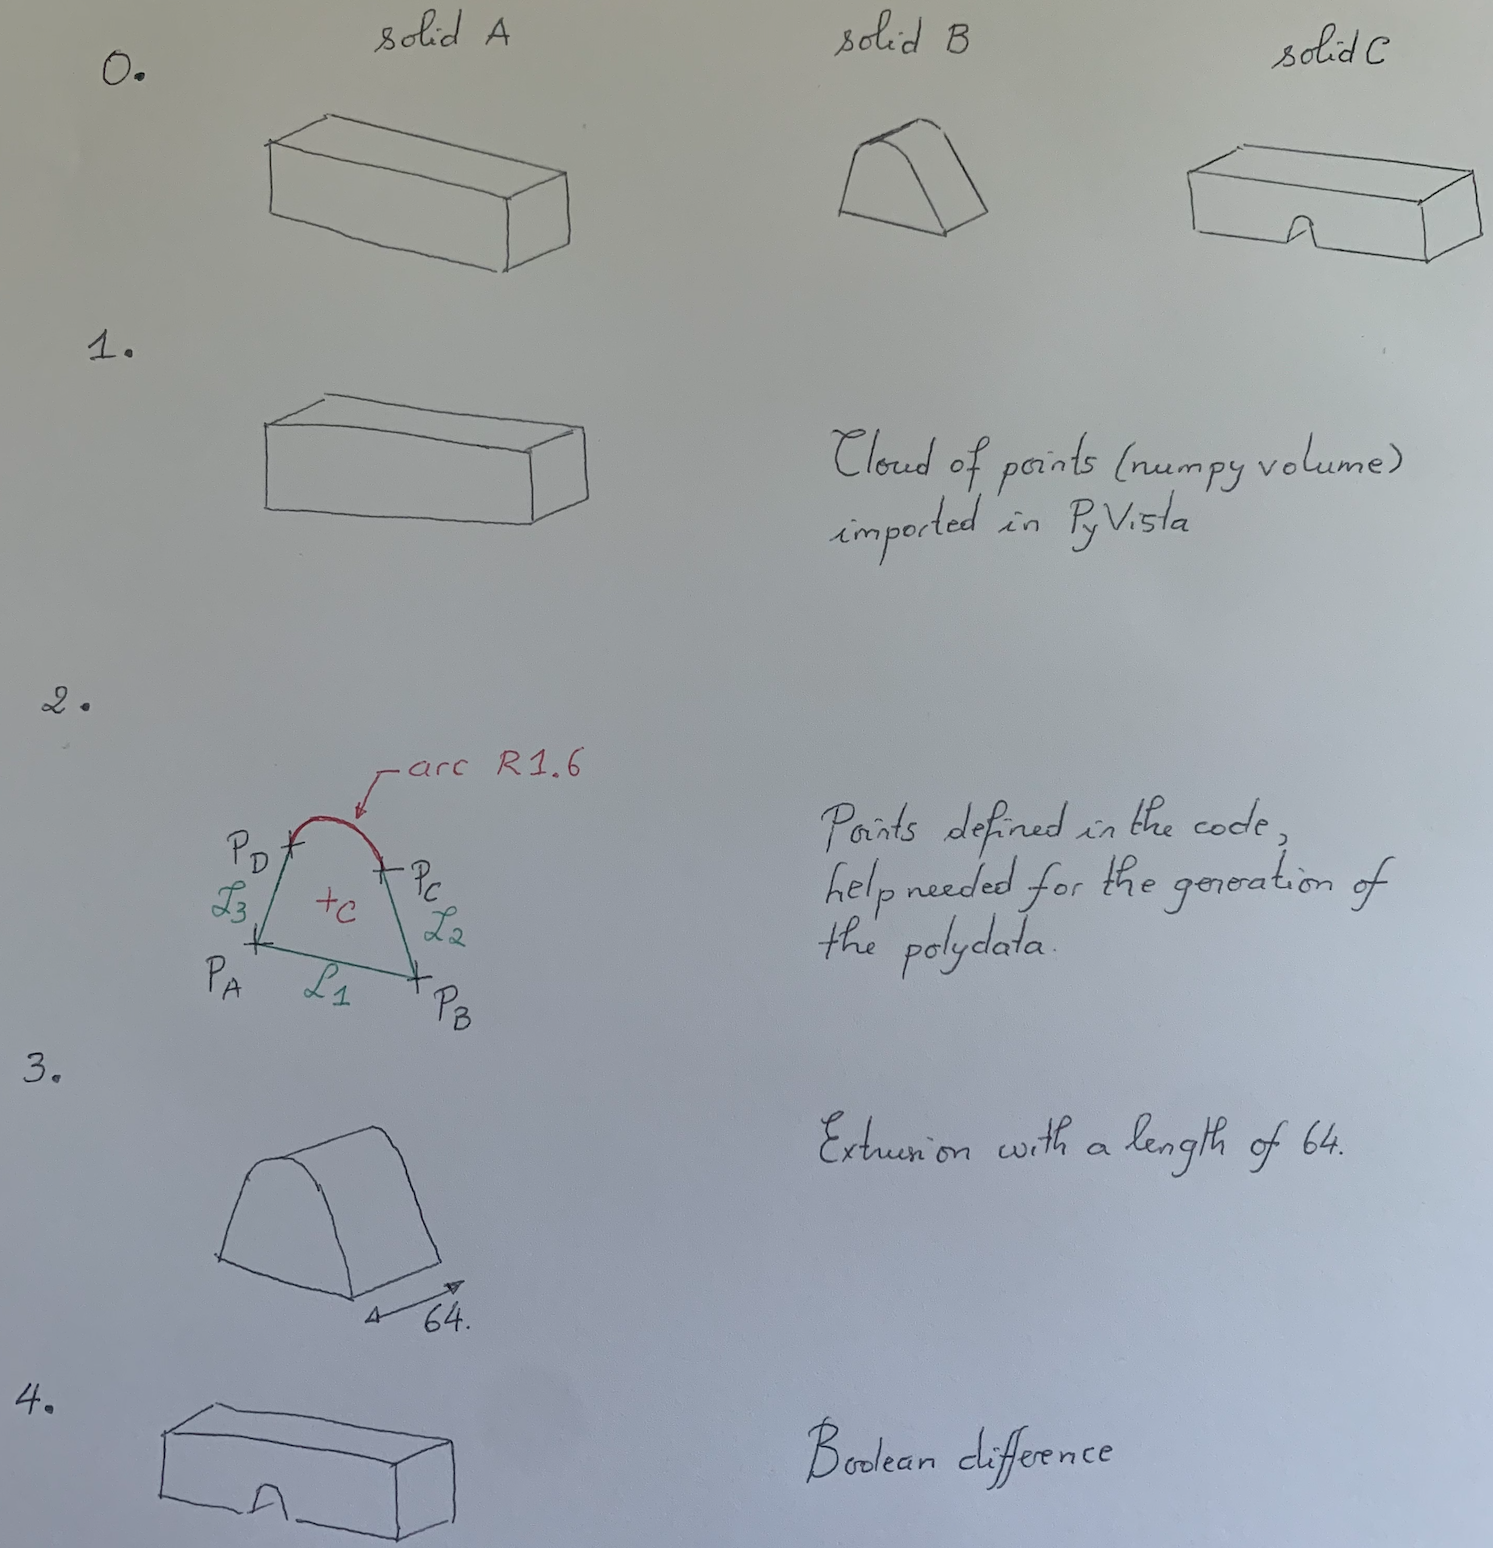 0.
solid A
solid B
solid C
1.
Cloud of points (numpy volume)
imported in PyVista
2.
arc R1.6
PD
PC
L3
+C
L2
PA
L1
PB
Points defined in the code,
help needed for the generation of
the polydata.
3.
Extrusion with a length of 64.
64.
4.
Boolean difference